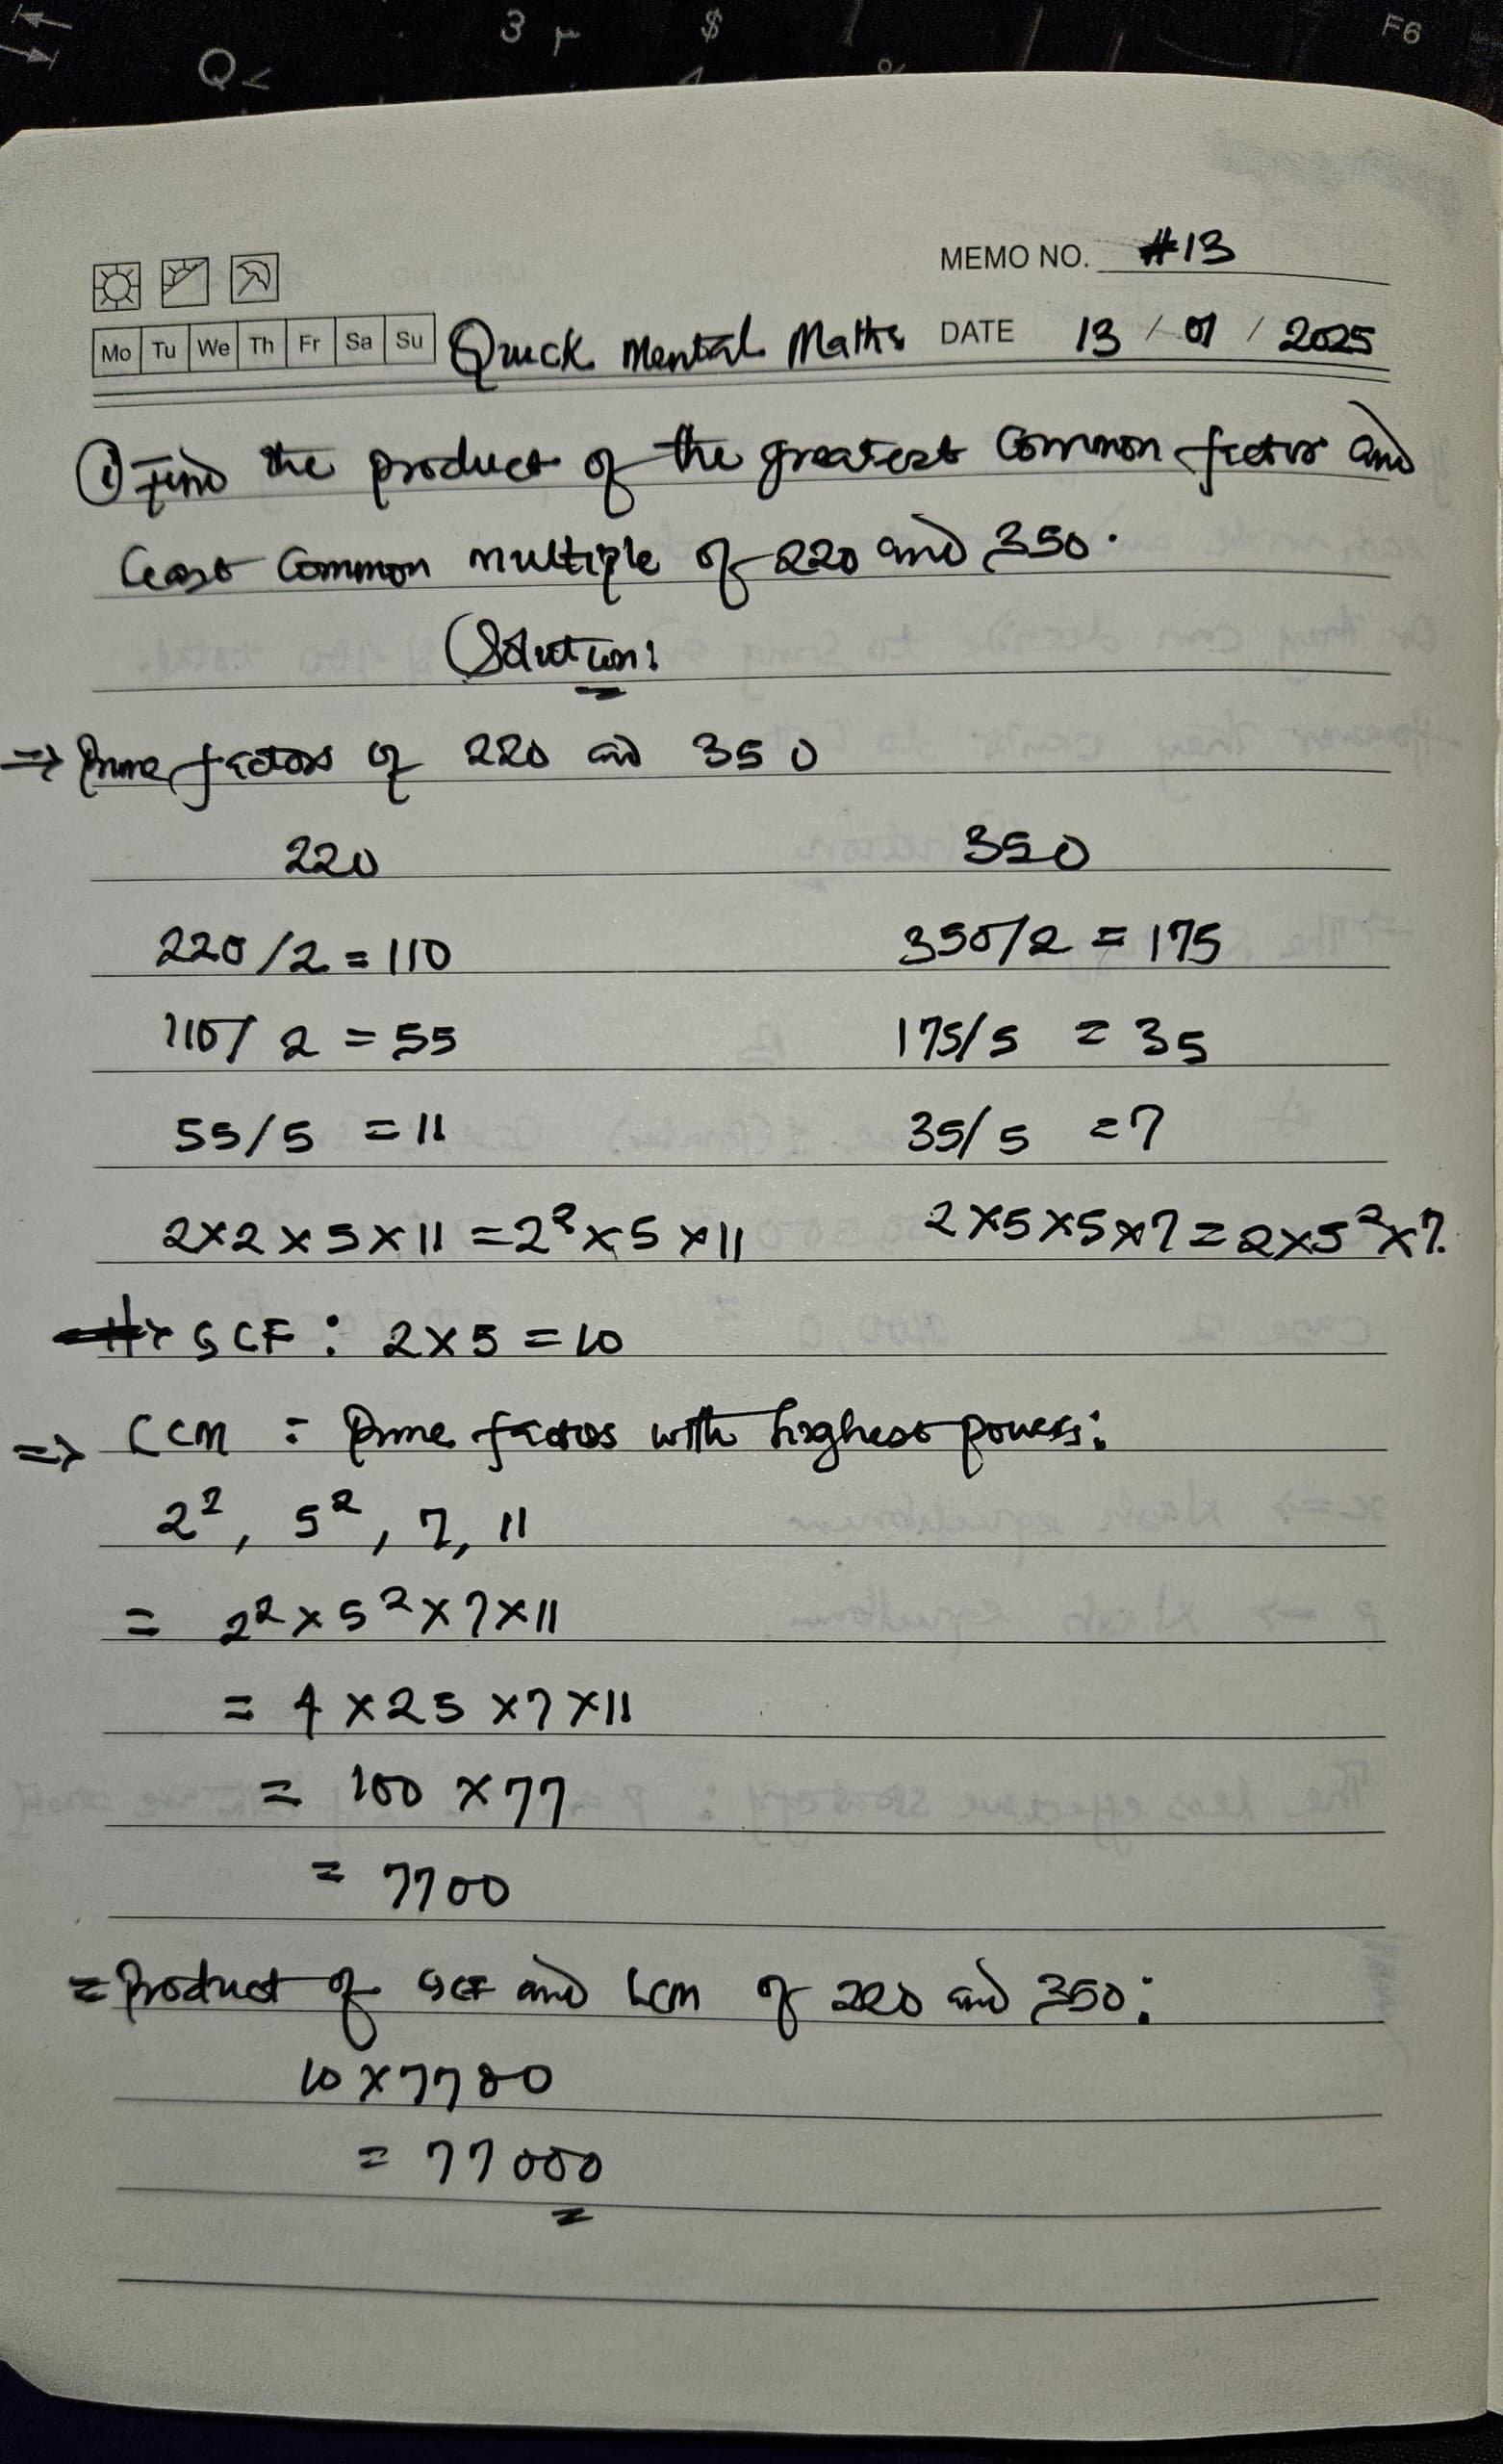 3
$
F6
Q
MEMO NO. #13
Mo Tu We Th Fr Sa Su Quick Mental Maths DATE 13 / 01 / 2025
① Find the product of the greatest common factor and
least common multiple of 220 and 350.
Solution:
=> Prime factors of 220 and 350
220 350
220/2 = 110 350/2 = 175
110/2 = 55 175/5 = 35
55/5 = 11 35/5 = 7
2×2×5×11 = 2²×5×11 2×5×5×7 = 2×5²×7.
GCF: 2×5 = 10
=> LCM = Prime factors with highest powers:
2², 5², 7, 11
= 2²×5²×7×11
= 4×25×7×11
= 100×77
= 7700
= Product of GCF and LCM of 220 and 350:
10×7700
= 77000